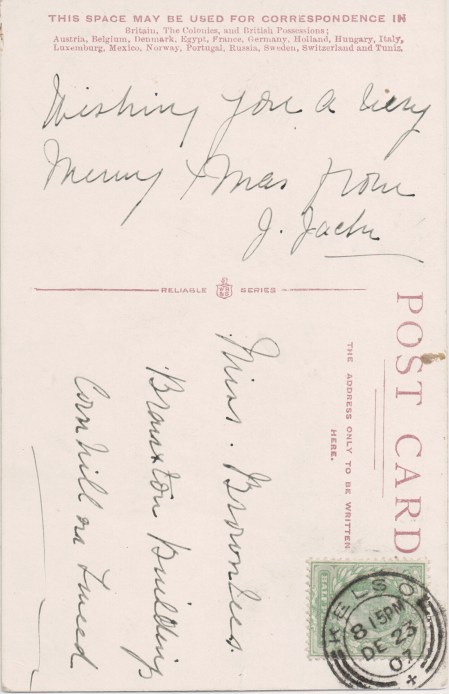 THIS SPACE MAY BE USED FOR CORRESPONDENCE IN
Britain, The Colonies, and British Possessions;
Austria, Belgium, Denmark, Egypt, France, Germany, Holland, Hungary, Italy,
Luxemburg, Mexico, Norway, Portugal, Russia, Sweden, Switzerland and Tunis.
Wishing you a very
Merry Xmas from
J.
RELIABLE SERIES
POST CARD
THE ADDRESS ONLY TO BE WRITTEN
HERE.
Miss. Brownlees.
Branxton Building
Cornhill on Tweed
KELSO
8 15PM
DE 23
07